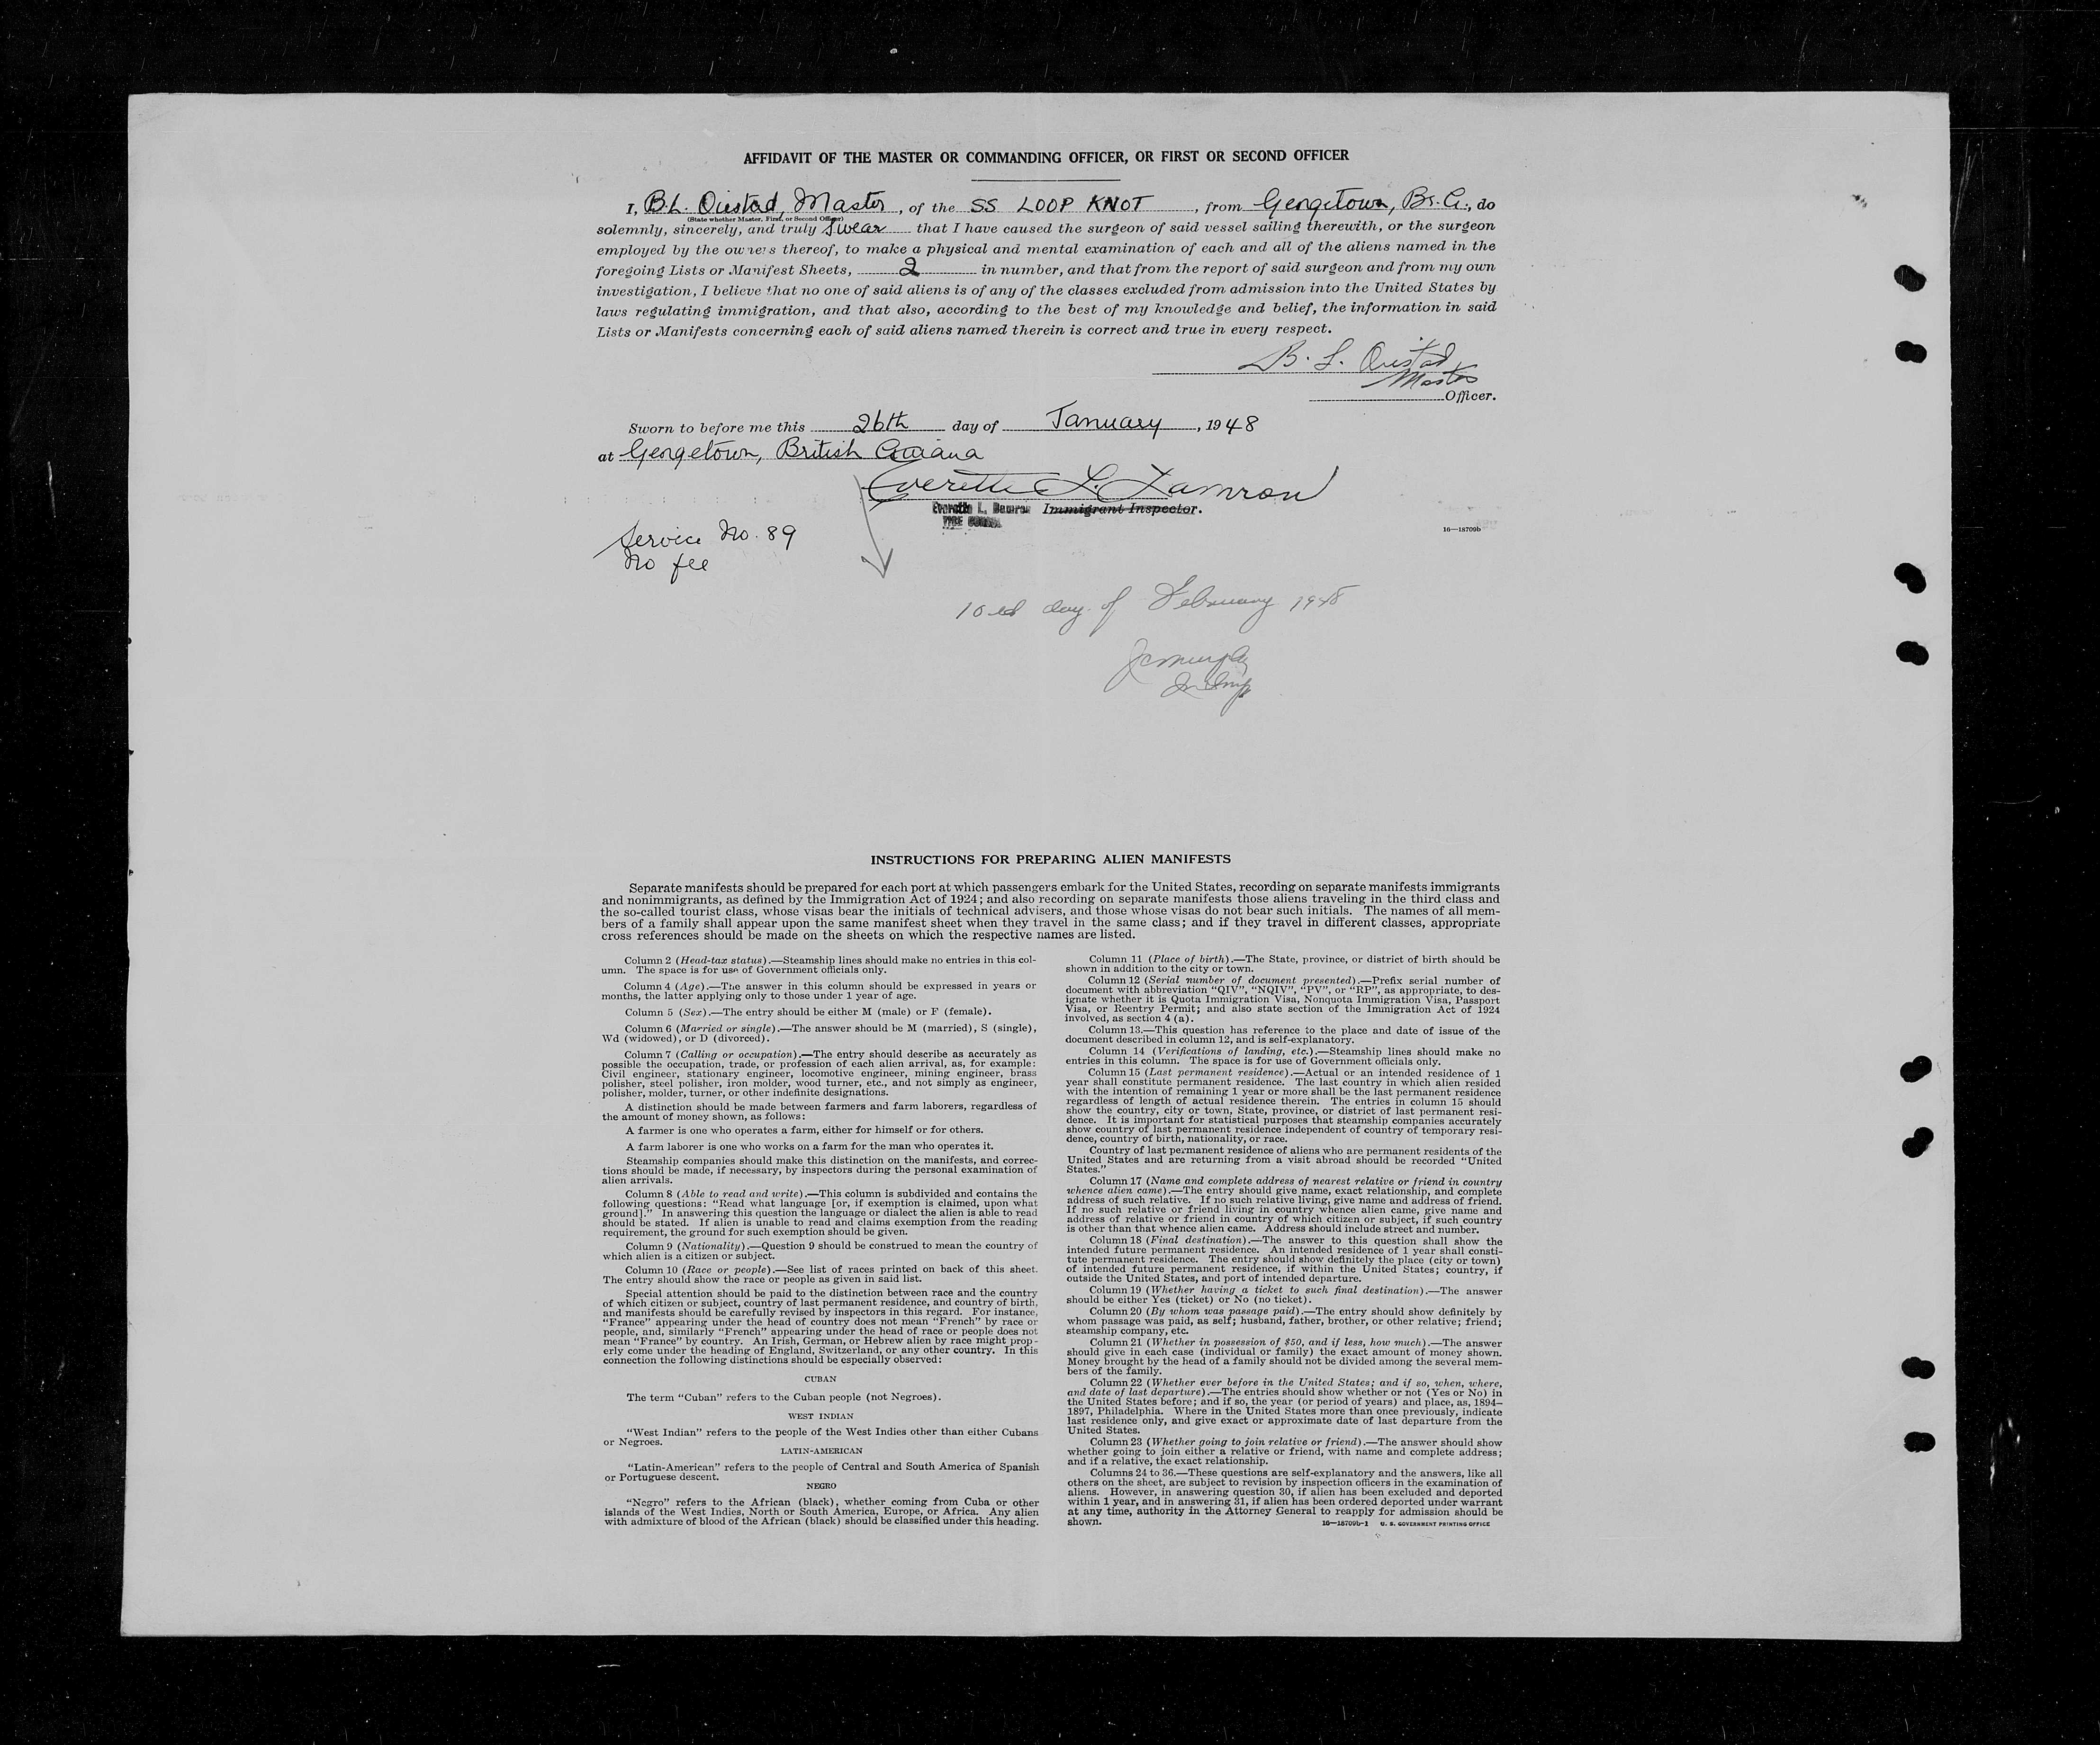 AFFIDAVIT OF THE MASTER OR COMMANDING OFFICER, OR FIRST OR SECOND OFFICER
I, B.L. Oustad, Master, of the SS LOOP KNOT, from Georgetown, Br. G., do
(State whether Master, First, or Second Officer)
solemnly, sincerely, and truly swear that I have caused the surgeon of said vessel sailing therewith, or the surgeon
employed by the owners thereof, to make a physical and mental examination of each and all of the aliens named in the
foregoing Lists or Manifest Sheets, 2 in number, and that from the report of said surgeon and from my own
investigation, I believe that no one of said aliens is of any of the classes excluded from admission into the United States by
laws regulating immigration, and that also, according to the best of my knowledge and belief, the information in said
Lists or Manifests concerning each of said aliens named therein is correct and true in every respect.
B. L. Oustad
Master
Officer.
Sworn to before me this 26th day of January, 1948
at Georgetown, British Guiana
Everette L. Damron
Everette L. Damron Immigrant Inspector.
VICE CONSUL
16—18709b
Service No. 89
No fee
day of February 1948
INSTRUCTIONS FOR PREPARING ALIEN MANIFESTS
Separate manifests should be prepared for each port at which passengers embark for the United States, recording on separate manifests immigrants
and nonimmigrants, as defined by the Immigration Act of 1924; and also recording on separate manifests those aliens traveling in the third class and
the so-called tourist class, whose visas bear the initials of technical advisers, and those whose visas do not bear such initials. The names of all mem-
bers of a family shall appear upon the same manifest sheet when they travel in the same class; and if they travel in different classes, appropriate
cross references should be made on the sheets on which the respective names are listed.
Column 2 (Head-tax status).—Steamship lines should make no entries in this col-
umn. The space is for use of Government officials only.
Column 4 (Age).—The answer in this column should be expressed in years or
months, the latter applying only to those under 1 year of age.
Column 5 (Sex).—The entry should be either M (male) or F (female).
Column 6 (Married or single).—The answer should be M (married), S (single),
Wd (widowed), or D (divorced).
Column 7 (Calling or occupation).—The entry should describe as accurately as
possible the occupation, trade, or profession of each alien arrival, as, for example:
Civil engineer, stationary engineer, locomotive engineer, mining engineer, brass
polisher, steel polisher, iron molder, wood turner, etc., and not simply as engineer,
polisher, molder, turner, or other indefinite designations.
A distinction should be made between farmers and farm laborers, regardless of
the amount of money shown, as follows:
A farmer is one who operates a farm, either for himself or for others.
A farm laborer is one who works on a farm for the man who operates it.
Steamship companies should make this distinction on the manifests, and correc-
tions should be made, if necessary, by inspectors during the personal examination of
alien arrivals.
Column 8 (Able to read and write).—This column is subdivided and contains the
following questions: “Read what language [or, if exemption is claimed, upon what
ground].” In answering this question the language or dialect the alien is able to read
should be stated. If alien is unable to read and claims exemption from the reading
requirement, the ground for such exemption should be given.
Column 9 (Nationality).—Question 9 should be construed to mean the country of
which alien is a citizen or subject.
Column 10 (Race or people).—See list of races printed on back of this sheet.
The entry should show the race or people as given in said list.
Special attention should be paid to the distinction between race and the country
of which citizen or subject, country of last permanent residence, and country of birth,
and manifests should be carefully revised by inspectors in this regard. For instance,
“France” appearing under the head of country does not mean “French” by race or
people, and, similarly “French” appearing under the head of race or people does not
mean “France” by country. An Irish, German, or Hebrew alien by race might prop-
erly come under the heading of England, Switzerland, or any other country. In this
connection the following distinctions should be especially observed:
CUBAN
The term “Cuban” refers to the Cuban people (not Negroes).
WEST INDIAN
“West Indian” refers to the people of the West Indies other than either Cubans
or Negroes.
LATIN-AMERICAN
“Latin-American” refers to the people of Central and South America of Spanish
or Portuguese descent.
NEGRO
“Negro” refers to the African (black), whether coming from Cuba or other
islands of the West Indies, North or South America, Europe, or Africa. Any alien
with admixture of blood of the African (black) should be classified under this heading.
Column 11 (Place of birth).—The State, province, or district of birth should be
shown in addition to the city or town.
Column 12 (Serial number of document presented).—Prefix serial number of
document with abbreviation “QIV”, “NQIV”, “PV”, or “RP”, as appropriate, to des-
ignate whether it is Quota Immigration Visa, Nonquota Immigration Visa, Passport
Visa, or Reentry Permit; and also state section of the Immigration Act of 1924
involved, as section 4 (a).
Column 13.—This question has reference to the place and date of issue of the
document described in column 12, and is self-explanatory.
Column 14 (Verifications of landing, etc.).—Steamship lines should make no
entries in this column. The space is for use of Government officials only.
Column 15 (Last permanent residence).—Actual or an intended residence of 1
year shall constitute permanent residence. The last country in which alien resided
with the intention of remaining 1 year or more shall be the last permanent residence
regardless of length of actual residence therein. The entries in column 15 should
show the country, city or town, State, province, or district of last permanent resi-
dence. It is important for statistical purposes that steamship companies accurately
show country of last permanent residence independent of country of temporary resi-
dence, country of birth, nationality, or race.
Country of last permanent residence of aliens who are permanent residents of the
United States and are returning from a visit abroad should be recorded “United
States.”
Column 17 (Name and complete address of nearest relative or friend in country
whence alien came).—The entry should give name, exact relationship, and complete
address of such relative. If no such relative living, give name and address of friend.
If no such relative or friend living in country whence alien came, give name and
address of relative or friend in country of which citizen or subject, if such country
is other than that whence alien came. Address should include street and number.
Column 18 (Final destination).—The answer to this question shall show the
intended future permanent residence. An intended residence of 1 year shall consti-
tute permanent residence. The entry should show definitely the place (city or town)
of intended future permanent residence, if within the United States; country, if
outside the United States, and port of intended departure.
Column 19 (Whether having a ticket to such final destination).—The answer
should be either Yes (ticket) or No (no ticket).
Column 20 (By whom was passage paid).—The entry should show definitely by
whom passage was paid, as self; husband, father, brother, or other relative; friend;
steamship company, etc.
Column 21 (Whether in possession of $50, and if less, how much).—The answer
should give in each case (individual or family) the exact amount of money shown.
Money brought by the head of a family should not be divided among the several mem-
bers of the family.
Column 22 (Whether ever before in the United States; and if so, when, where,
and date of last departure).—The entries should show whether or not (Yes or No) in
the United States before; and if so, the year (or period of years) and place, as, 1894–
1897, Philadelphia. Where in the United States more than once previously, indicate
last residence only, and give exact or approximate date of last departure from the
United States.
Column 23 (Whether going to join relative or friend).—The answer should show
whether going to join either a relative or friend, with name and complete address;
and if a relative, the exact relationship.
Columns 24 to 36.—These questions are self-explanatory and the answers, like all
others on the sheet, are subject to revision by inspection officers in the examination of
aliens. However, in answering question 30, if alien has been excluded and deported
within 1 year, and in answering 31, if alien has been ordered deported under warrant
at any time, authority in the Attorney General to reapply for admission should be
shown.
16—18709b-1 U. S. GOVERNMENT PRINTING OFFICE